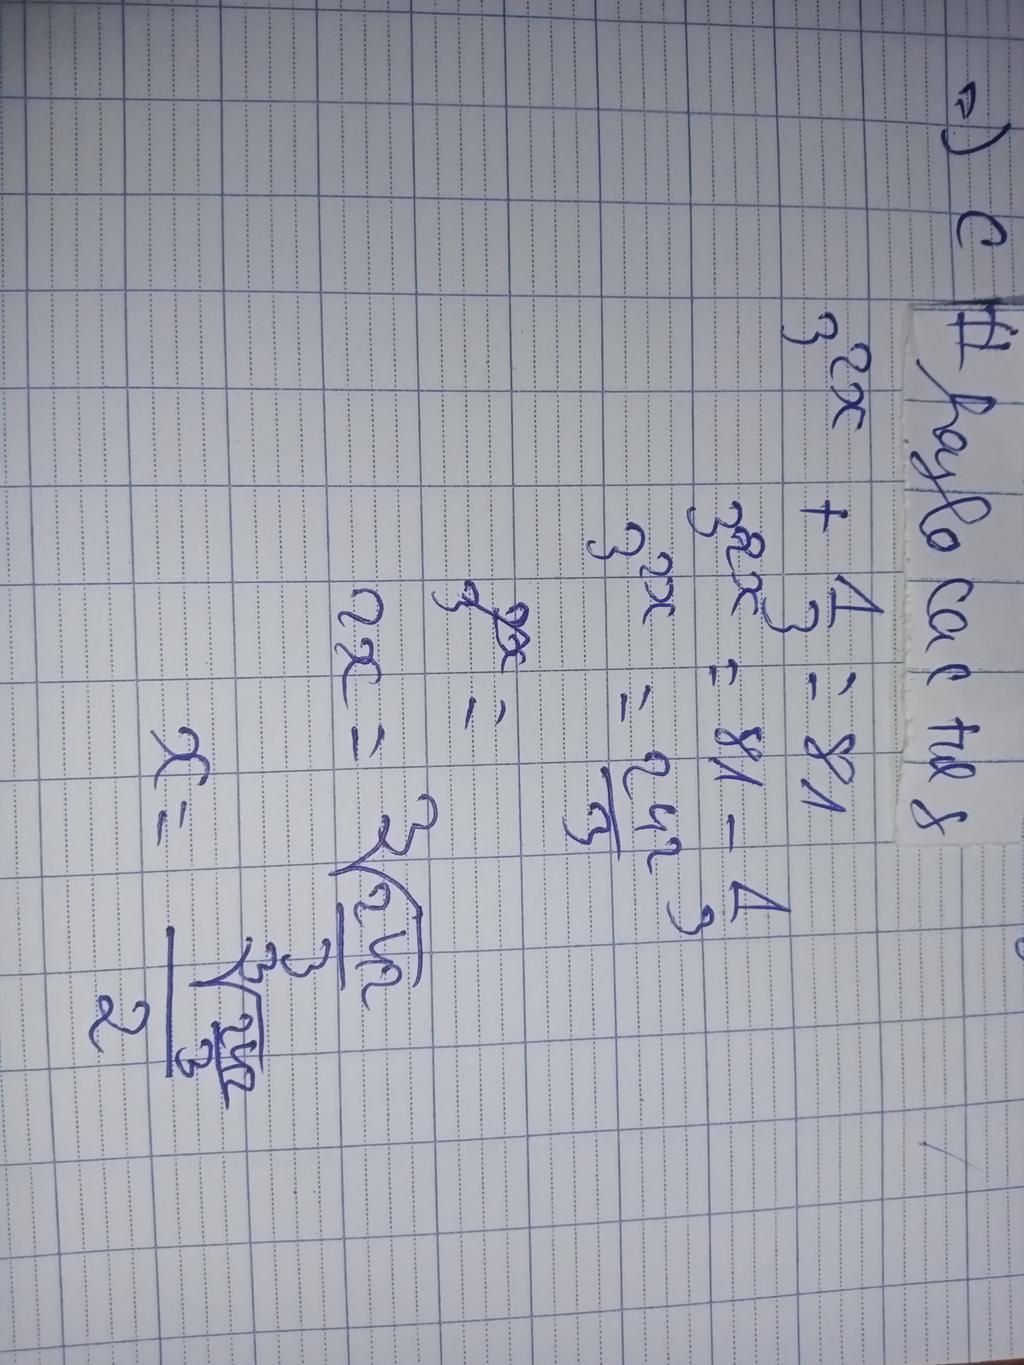 ⇒) C # phylo cac tus
3^2x + 1/3 = 81
3^2x = 81 - 1/3
3^2x = 242/3
3^2x =
2x = ³√242/3
x = ³√242/3 / 2